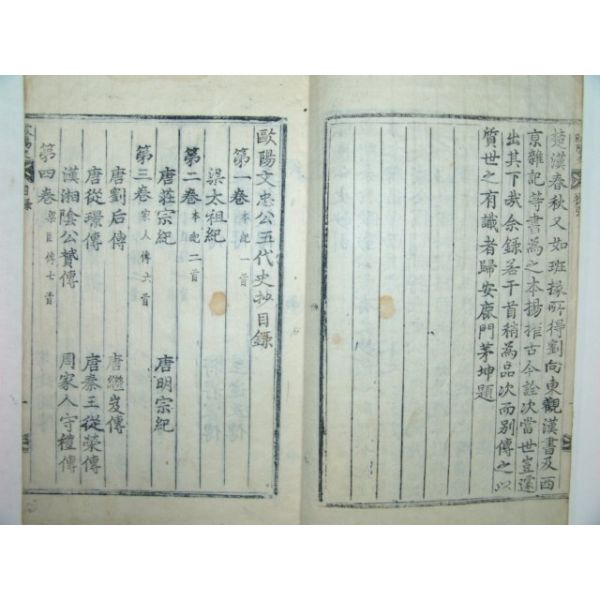 楚漢春秋又如班掾所得劉向東觀漢書及西
京雜記等書為之本揚搉古今詮次當世豈遽
出其下哉余錄若干首稍為品次而別傳之以
質世之有識者歸安鹿門茅坤題
歐陽文忠公五代史抄目錄
第一卷 本紀一首
梁太祖紀
第二卷 本紀二首
唐莊宗紀 唐明宗紀
第三卷 家人傳六首
唐劉后傳 唐繼岌傳
唐從璟傳 唐秦王從榮傳
漢湘陰公贇傳 周家人守禮傳
第四卷 梁臣傳七首